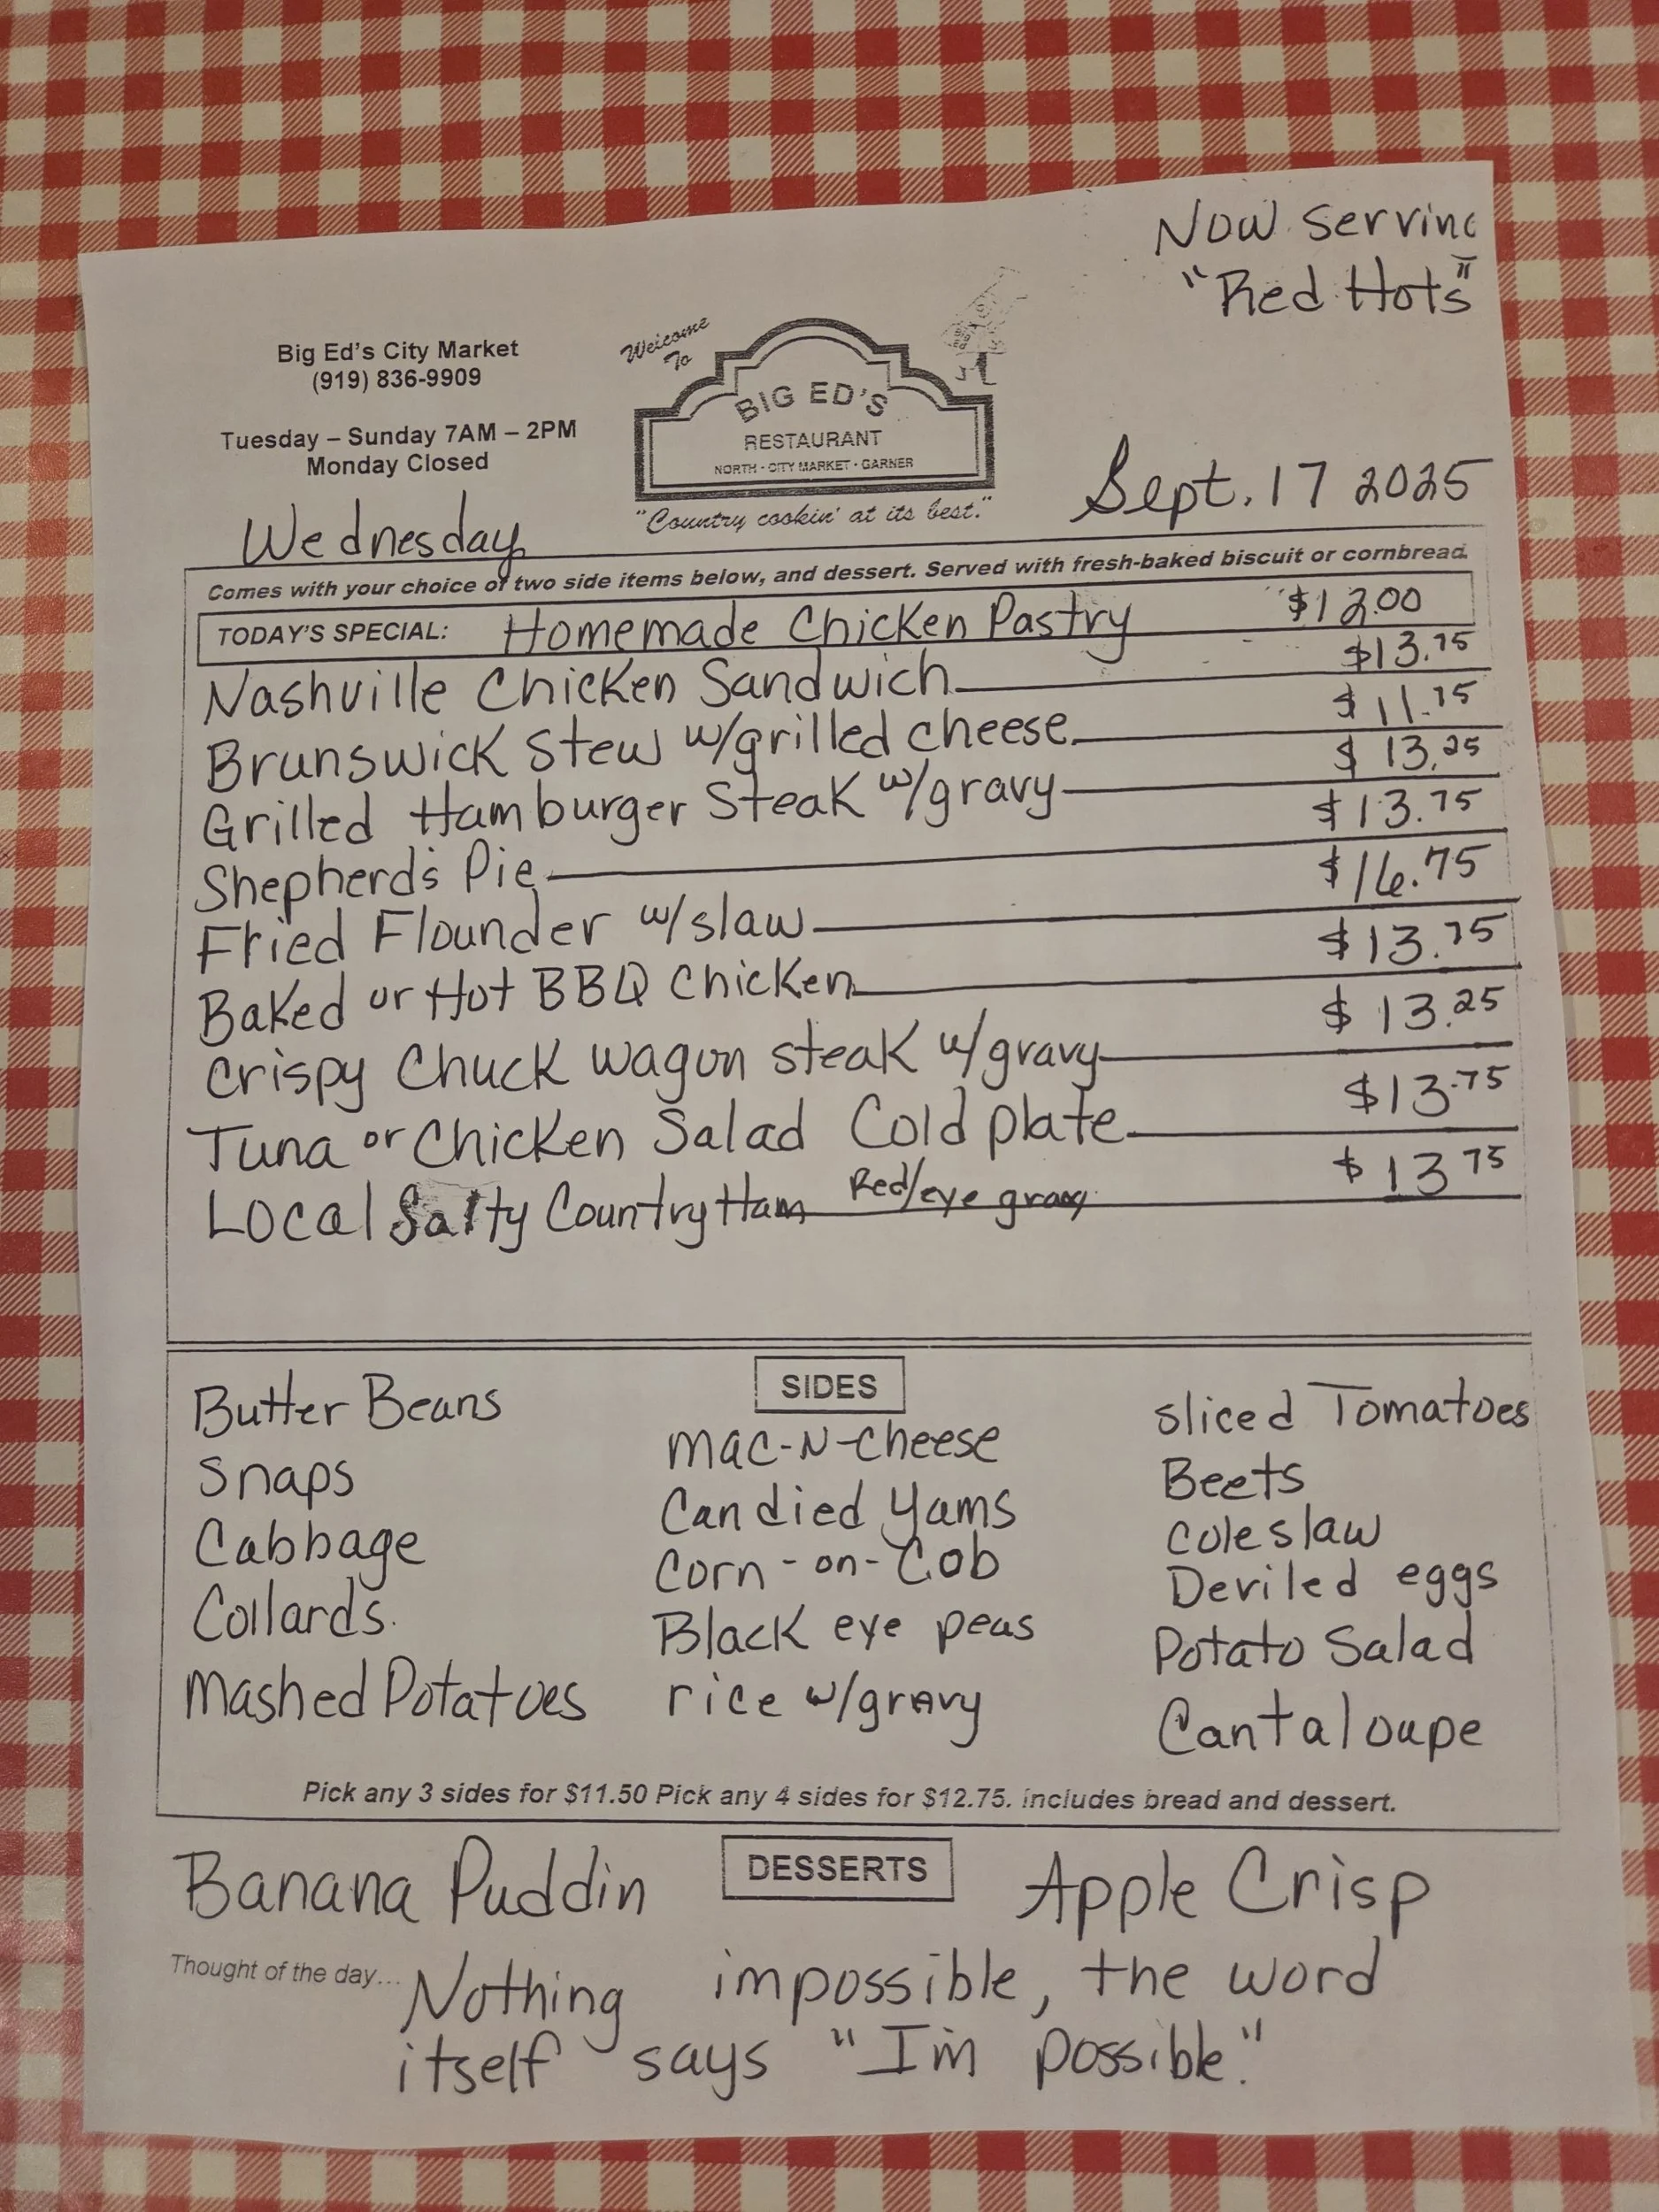 Now serving
"Red Hots"
Big Ed's City Market
(919) 836-9909
Tuesday – Sunday 7AM – 2PM
Monday Closed
Welcome
To
BIG ED'S
RESTAURANT
NORTH · CITY MARKET · GARNER
"Country cookin' at its best."
Wednesday
Sept. 17 2025
Comes with your choice of two side items below, and dessert. Served with fresh-baked biscuit or cornbread.
TODAY'S SPECIAL: Homemade Chicken Pastry $12.00
Nashville Chicken Sandwich $13.75
Brunswick Stew w/grilled cheese $11.75
Grilled Hamburger Steak w/gravy $13.25
Shepherd's Pie $13.75
Fried Flounder w/slaw $16.75
Baked or Hot BBQ Chicken $13.75
Crispy Chuck wagon steak w/gravy $13.25
Tuna or Chicken Salad Cold plate $13.75
Local Salty Country Ham Red/eye gravy $13 75
SIDES
Butter Beans
Snaps
Cabbage
Collards.
Mashed Potatoes
Mac-N-Cheese
Candied Yams
Corn-on-Cob
Black eye peas
rice w/gravy
sliced Tomatoes
Beets
coleslaw
Deviled eggs
Potato Salad
Cantaloupe
Pick any 3 sides for $11.50 Pick any 4 sides for $12.75. includes bread and dessert.
DESSERTS
Banana Puddin
Apple Crisp
Thought of the day... Nothing impossible, the word
itself says "I'm possible."